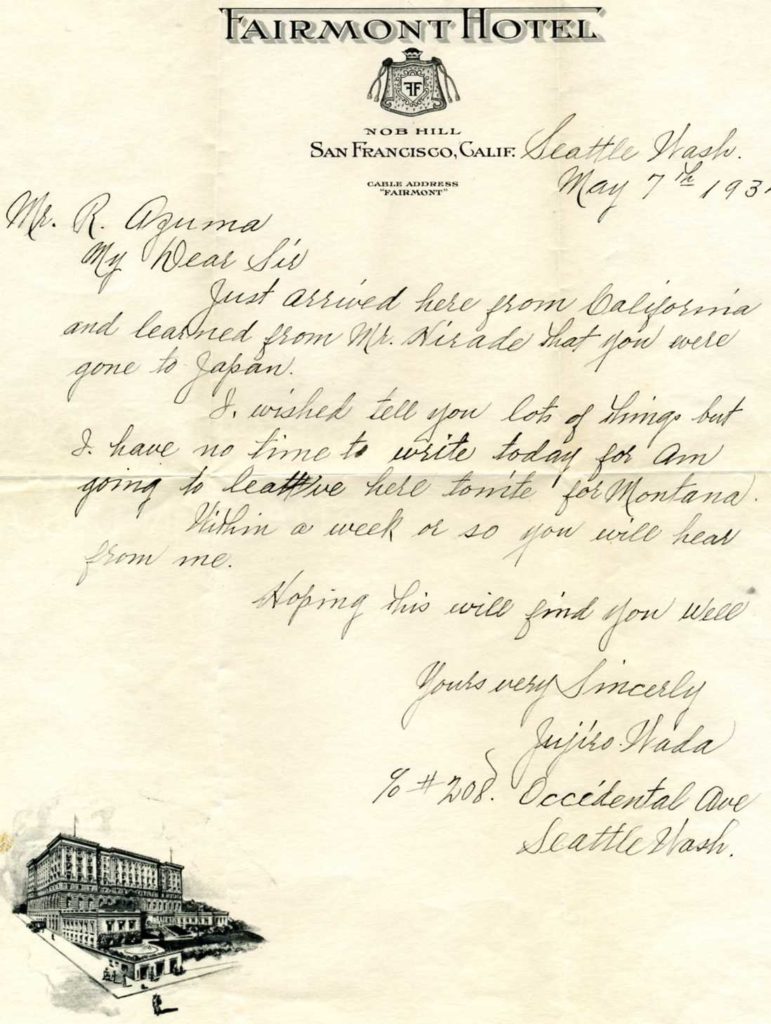 FAIRMONT HOTEL
FF
NOB HILL
SAN FRANCISCO, CALIF.
CABLE ADDRESS
"FAIRMONT"
Seattle Wash.
May 7th 193
Mr. R. Azuma
My Dear Sir
Just arrived here from California
and learned from Mr. Hirade that you were
gone to Japan.
I. wished tell you lots of things but
I. have no time to write today for am
going to leave here tonite for Montana.
Within a week or so you will hear
from me.
Hoping this will find you well
Yours very Sincerly
Jujiro Wada
c/o #208. Occidental Ave
Seattle Wash.